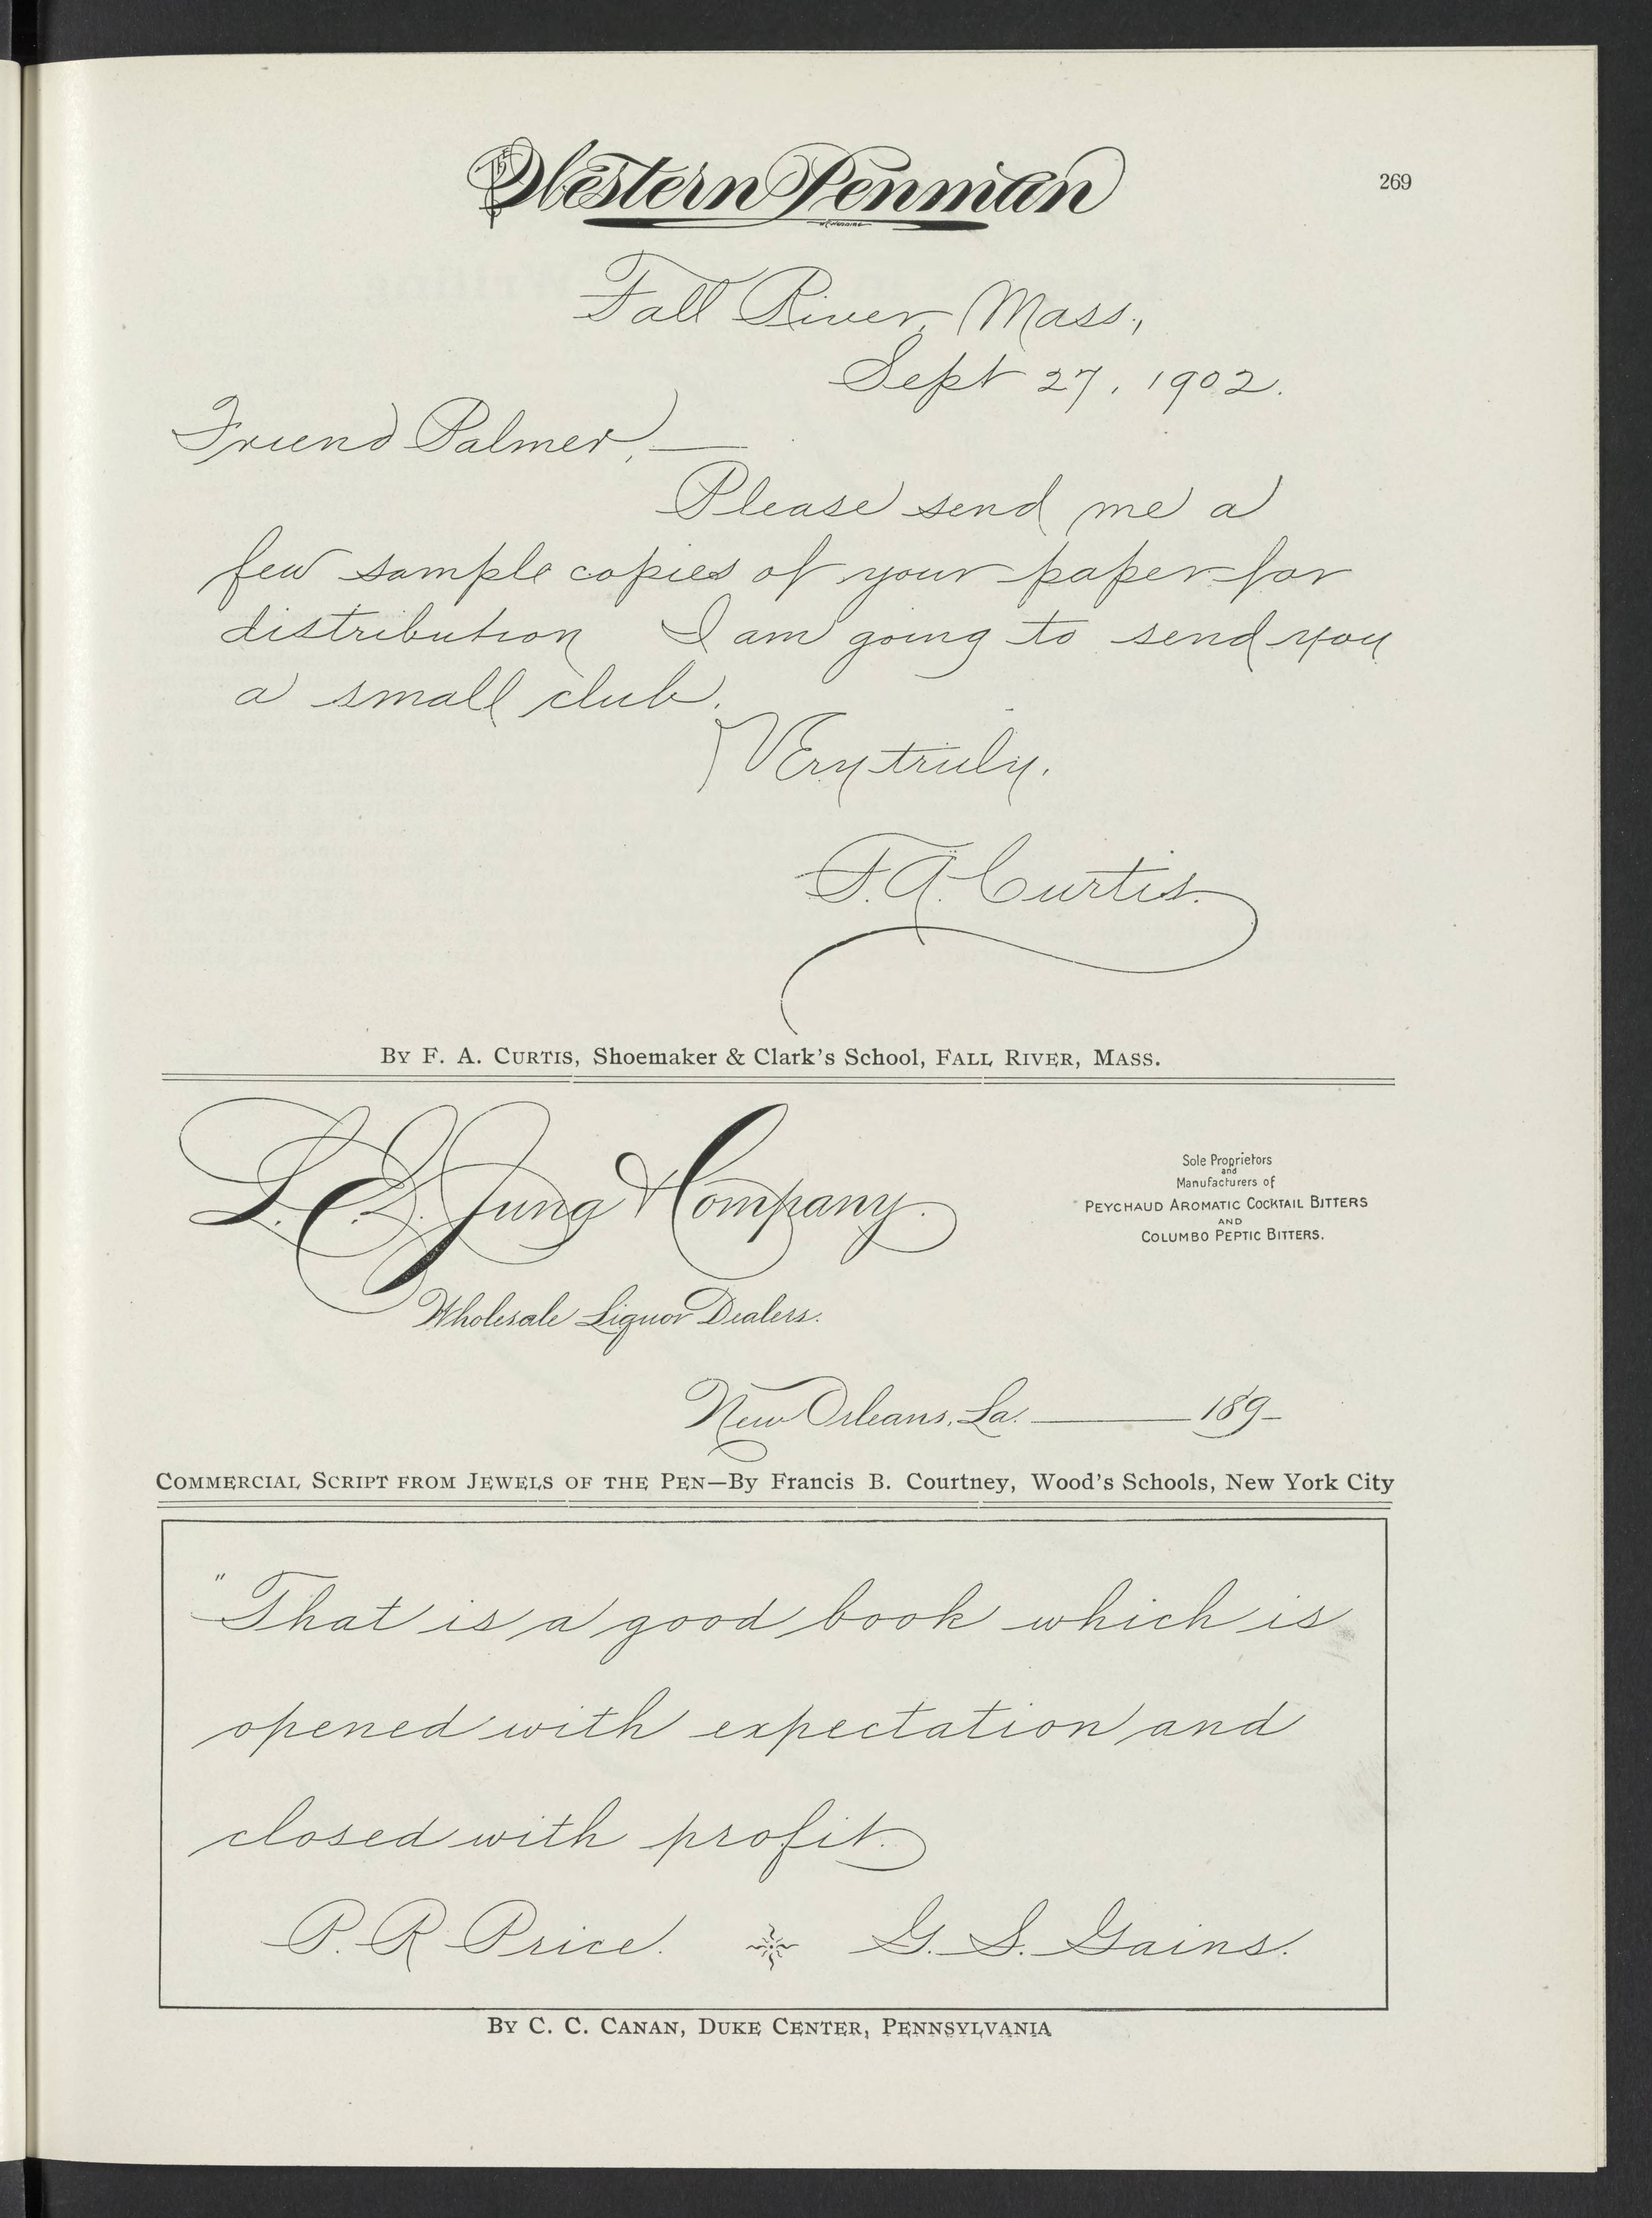 The Western Penman
269
Fall River, Mass.,
Sept 27, 1902.
Friend Palmer,—
Please send me a
few sample copies of your paper for
distribution I am going to send you
a small club.
Very truly,
F. A. Curtis.
By F. A. Curtis, Shoemaker & Clark's School, Fall River, Mass.
Sole Proprietors
and
Manufacturers of
Peychaud Aromatic Cocktail Bitters
and
Columbo Peptic Bitters.
L. E. Jung & Company.
Wholesale Liquor Dealers.
New Orleans, La. 189
Commercial Script from Jewels of the Pen—By Francis B. Courtney, Wood's Schools, New York City
"That is a good book which is
opened with expectation and
closed with profit.
P. R. Price. G. S. Gains.
By C. C. Canan, Duke Center, Pennsylvania